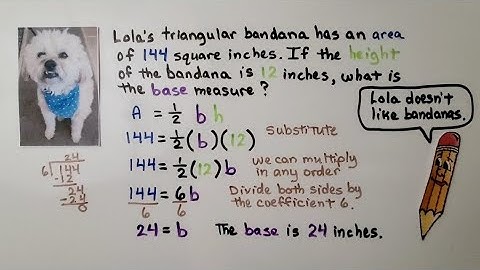 Lola's triangular bandana has an area
of 144 square inches. If the height
of the bandana is 12 inches, what is
the base measure?
A = 1/2 b h
144 = 1/2 (b)(12) substitute
144 = 1/2 (12) b we can multiply
in any order
144 = 6b Divide both sides by
6 6 the coefficient 6.
24 = b The base is 24 inches.
Lola doesn't
like bandanas.
24
6 144
-12
24
-24
0